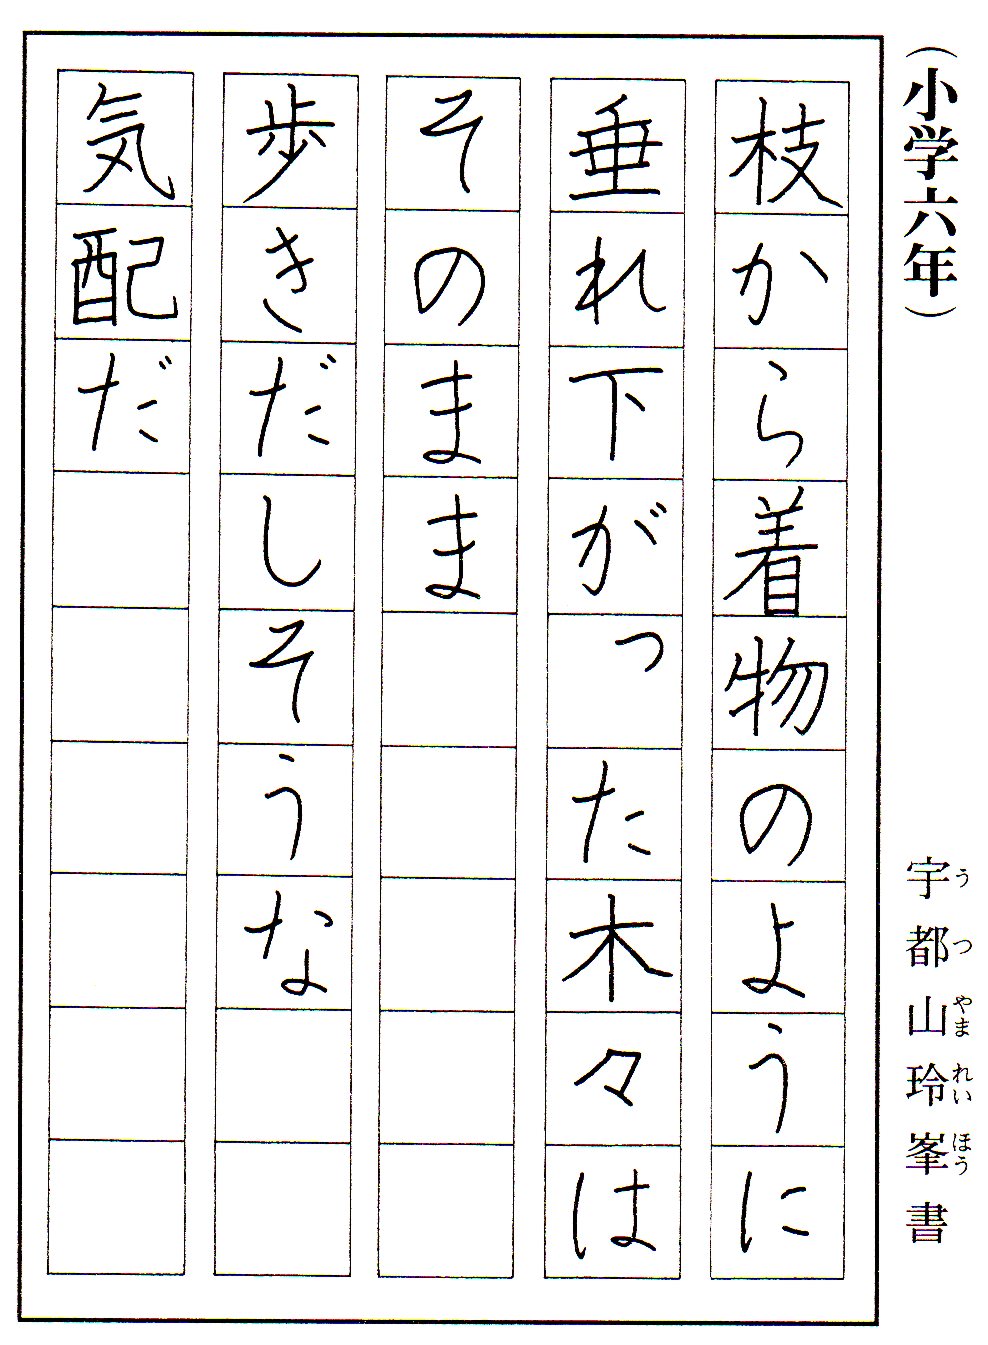 (小学六年)
宇都山玲峯書
うつやまれいほう
枝から着物のように
垂れ下がった木々は
そのまま
歩きだしそうな
気配だ